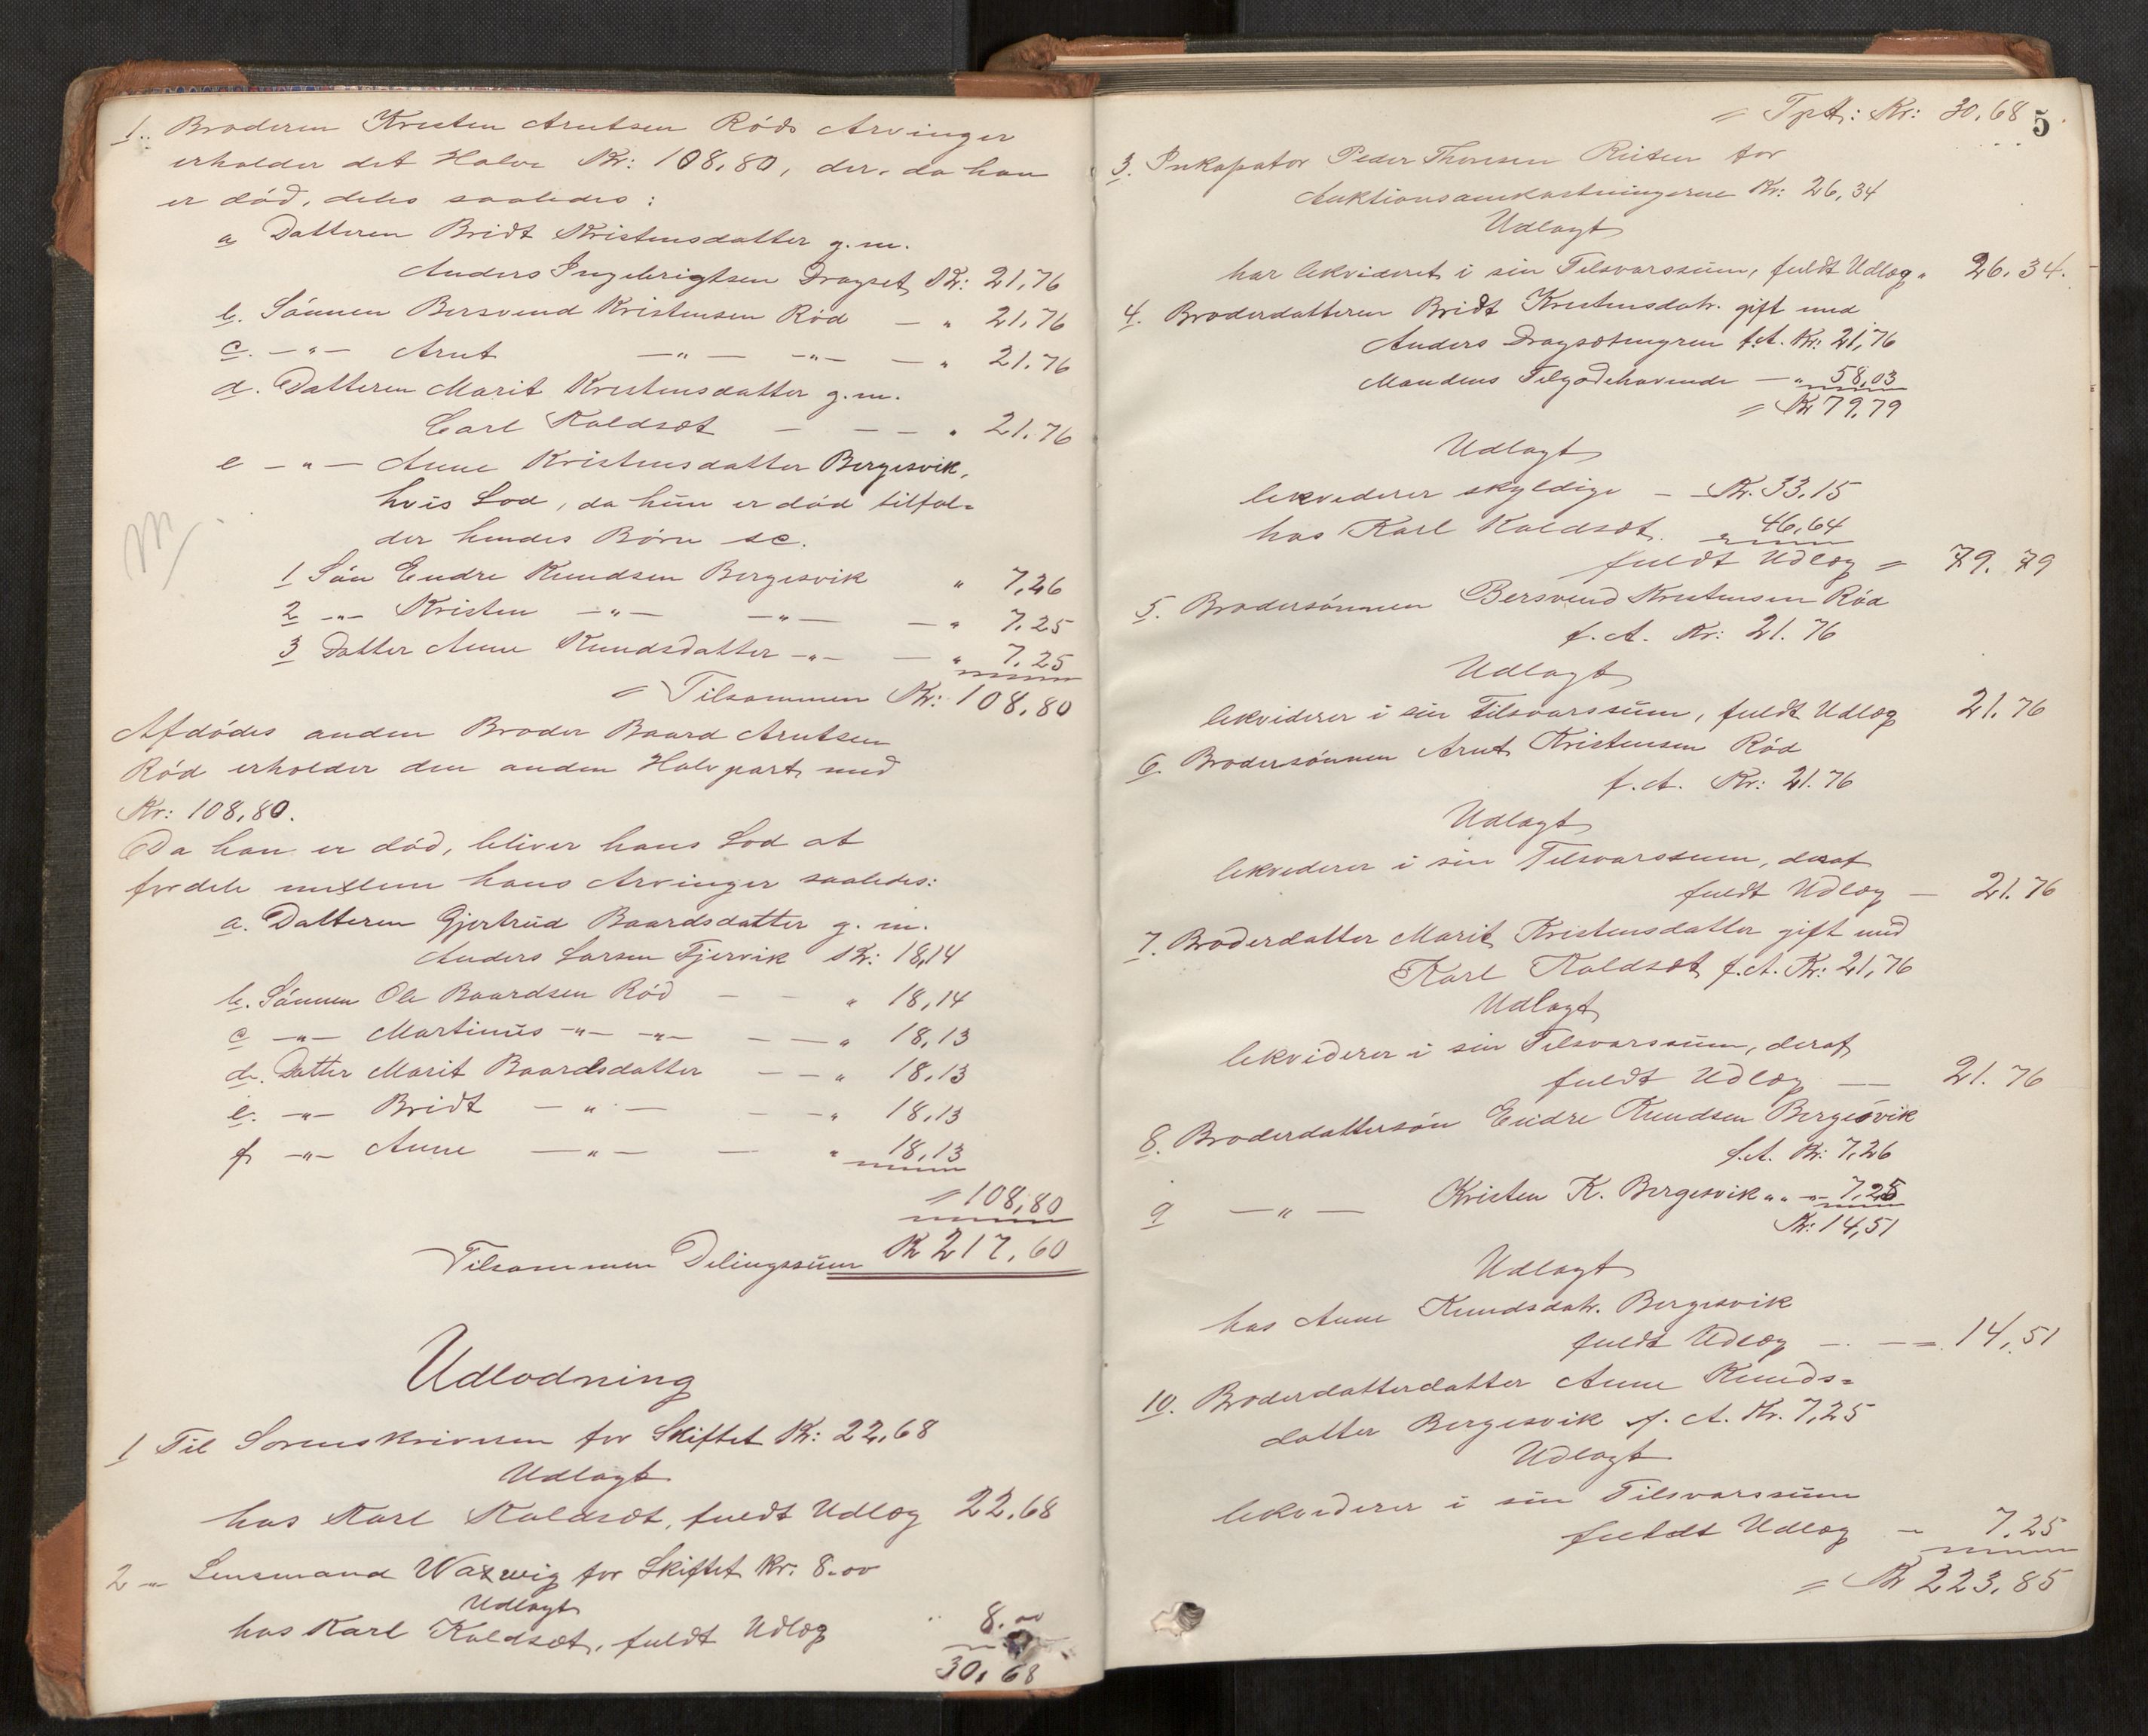 1. Broderen Kristen Arntsen Røds Arvinger
erholder det Halve Kr: 108,80, der, da han
er død, deles saaledes:
a Datteren Bridt Kristensdatter g.m.
Anders Ingebrigtsen Dragset Kr: 21,76
b. Sønnen Bersvend Kristensen Rød — " 21.76
c. —"— Arnt —"— —"— — " 21.76
d. Datteren Marit Kristensdatter g.m.
Carl Kaldsæt — — — " 21.76
e —"— Anne Kristensdatter Bergesvik,
hvis Lod, da hun er død tilfal=
der hendes Børn sc.
1 Søn Endre Knudsen Bergesvik " 7,26
2 —"— Kristen —"— —"— — " 7.25
3 Datter Anne Knudsdatter —"— — " 7.25
= Tilsammen Kr: 108,80
Afdødes anden Broder Baard Arntsen
Rød erholder den anden Halvpart med
Kr: 108,80.
Da han er død, bliver hans Lod at
fordele mellem hans Arvinger saaledes:
a. Datteren Gjertrud Baardsdatter g. m.
Anders Larsen Fjervik Kr: 18,14
b. Sønnen Ole Baardsen Rød — — " 18,14
c —"— Martinus —"— —"— — — " 18,13
d. Datter Marit Baardsdatter — — " 18.13
e. —"— Bridt —"— — — " 18,13
f —"— Anne —"— — " 18,13
= 108,80
Tilsammen Delingssum Kr 217,60
Udlodning
1 Til Sorenskriveren for Skiftet Kr: 22,68
Udlagt
hos Karl Kaldsæt, fuldt Udlæg 22.68
2 —"— Lensmand Waxwig for Skiftet Kr: 8.00
Udlagt
hos Karl Kaldsæt, fuldt Udlæg " 8.00
30,68
= Tpt: Kr: 30,68
5
3. Inkasator Peder Thoresen for
Auktionsomkostningerne Kr: 26,34
Udlagt
har likvideret i sin Tilsvarssum, fuldt Udlæg " 26.34.
4. Broderdatteren Bridt Kristensdatr. gift med
Anders Dragsætmyren f.A. Kr: 21,76
Mandens Tilgodehavende — " 58,03
= Kr 79,79
Udlagt
likviderer skyldige — Kr. 33.15
hos Karl Kaldsæt. " 46,64
fuldt Udlæg = 79.79
5. Brodersønnen Bersvend Kristensen Rød
f. A. Kr: 21.76
Udlagt
likviderer i sin Tilsvarssum, fuldt Udlæg 21.76
6. Brodersønnen Arnt Kristensen Rød
f. A. Kr: 21.76
Udlagt
likviderer i sin Tilsvarssum, deraf
fuldt Udlæg — 21.76
7. Broderdatter Marit Kristensdatter gift med
Karl Kaldsæt f.A. Kr: 21,76
Udlagt
likviderer i sin Tilsvarssum, deraf
fuldt Udlæg — 21.76
8. Broderdattersøn Endre Knudsen Bergesvik
f.A. Kr: 7,26
9 —"— Kristen K. Bergesvik " " —"— 7,25
Kr: 14,51
Udlagt
hos Anne Knudsdatr. Bergesvik
fuldt Udlæg — — = 14,51
10. Broderdatterdatter Anne Knuds=
datter Bergesvik f. A. Kr. 7,25
Udlagt
likviderer i sin Tilsvarssum
fuldt Udlæg — 7.25
= Kr 223,85